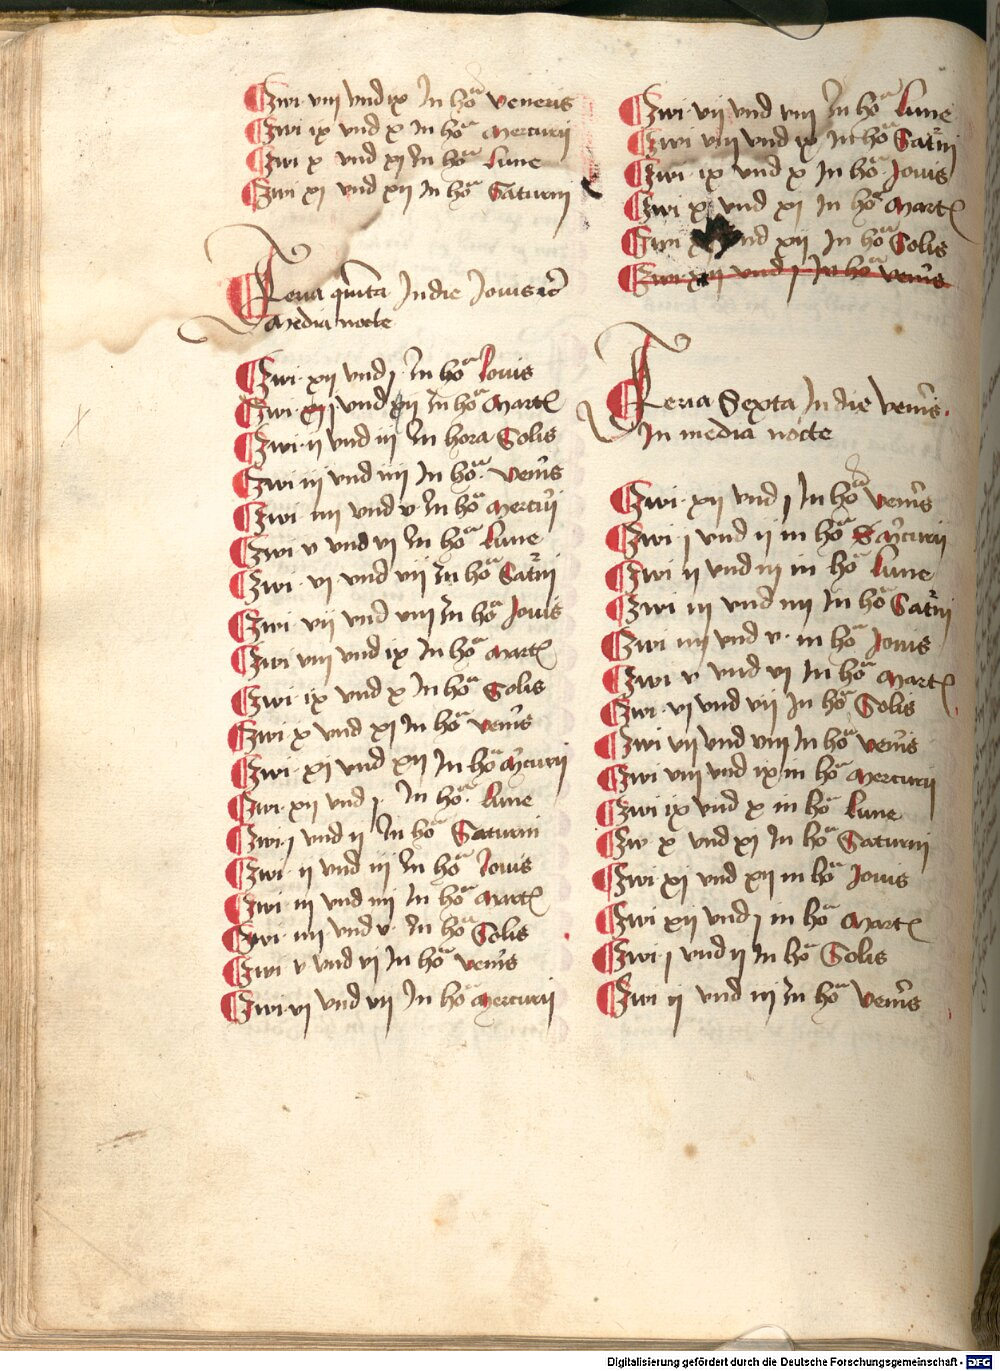 Zwi viii vnd ix In hoª Veneris
Zwi ix vnd x In hoª Mercurij
Zwi x vnd xi In hoª Lune
Zwi xi vnd xii In hoª Saturni
Feria quinta In die Jouis
Media nocte
Zwi xii vnd j In hoª Jouis
Zwi j vnd ij In hoª Mart
Zwi ii vnd iii In hora Solis
Zwi iii vnd iiii In hoª Ven's
Zwi iiii vnd v In hoª Mercurij
Zwi v vnd vi In hoª Lune
Zwi vi vnd vii In hoª Sat'ni
Zwi vii vnd viii In hoª Jouis
Zwi viii vnd ix In hoª Mart
Zwi ix vnd x In hoª Solis
Zwi x vnd xi In hoª Ven's
Zwi xi vnd xii In hoª M'curij
Zwi xii vnd j In hoª Lune
Zwi j vnd ij In hoª Saturni
Zwi ii vnd iii In hoª Jouis
Zwi iii vnd iiii In hoª Mart
Zwi iiii vnd v In hoª Solis
Zwi v vnd vi In hoª Ven's
Zwi vi vnd vii In hoª Mercurij
Zwi vii vnd viii In hoª Lune
Zwi viii vnd ix In hoª Sat'ni
Zwi ix vnd x In hoª Jouis
Zwi x vnd xi In hoª Mart
Zwi vnd xii In hoª Solis
Zwi xii vnd j In hoª Ven's
Feria Sexta In die Ven's
In media nocte
Zwi xii vnd j In hoª Ven's
Zwi j vnd ij in hoª M'curij
Zwi ii vnd iii in hoª Lune
Zwi iii vnd iiii In hoª Sat'ni
Zwi iiii vnd v in hoª Jouis
Zwi v vnd vi In hoª Mart
Zwi vi vnd vii In hoª Solis
Zwi vii vnd viii In hoª Ven's
Zwi viii vnd ix in hoª Mercurij
Zwi ix vnd x in hoª Lune
Zw x vnd xi In hoª Saturni
Zwi xi vnd xii in hoª Jouis
Zwi xii vnd j in hoª Mart
Zwi j vnd ij In hoª Solis
Zwi ij vnd iij In hoª Ven's
Digitalisierung gefördert durch die Deutsche Forschungsgemeinschaft - DFG